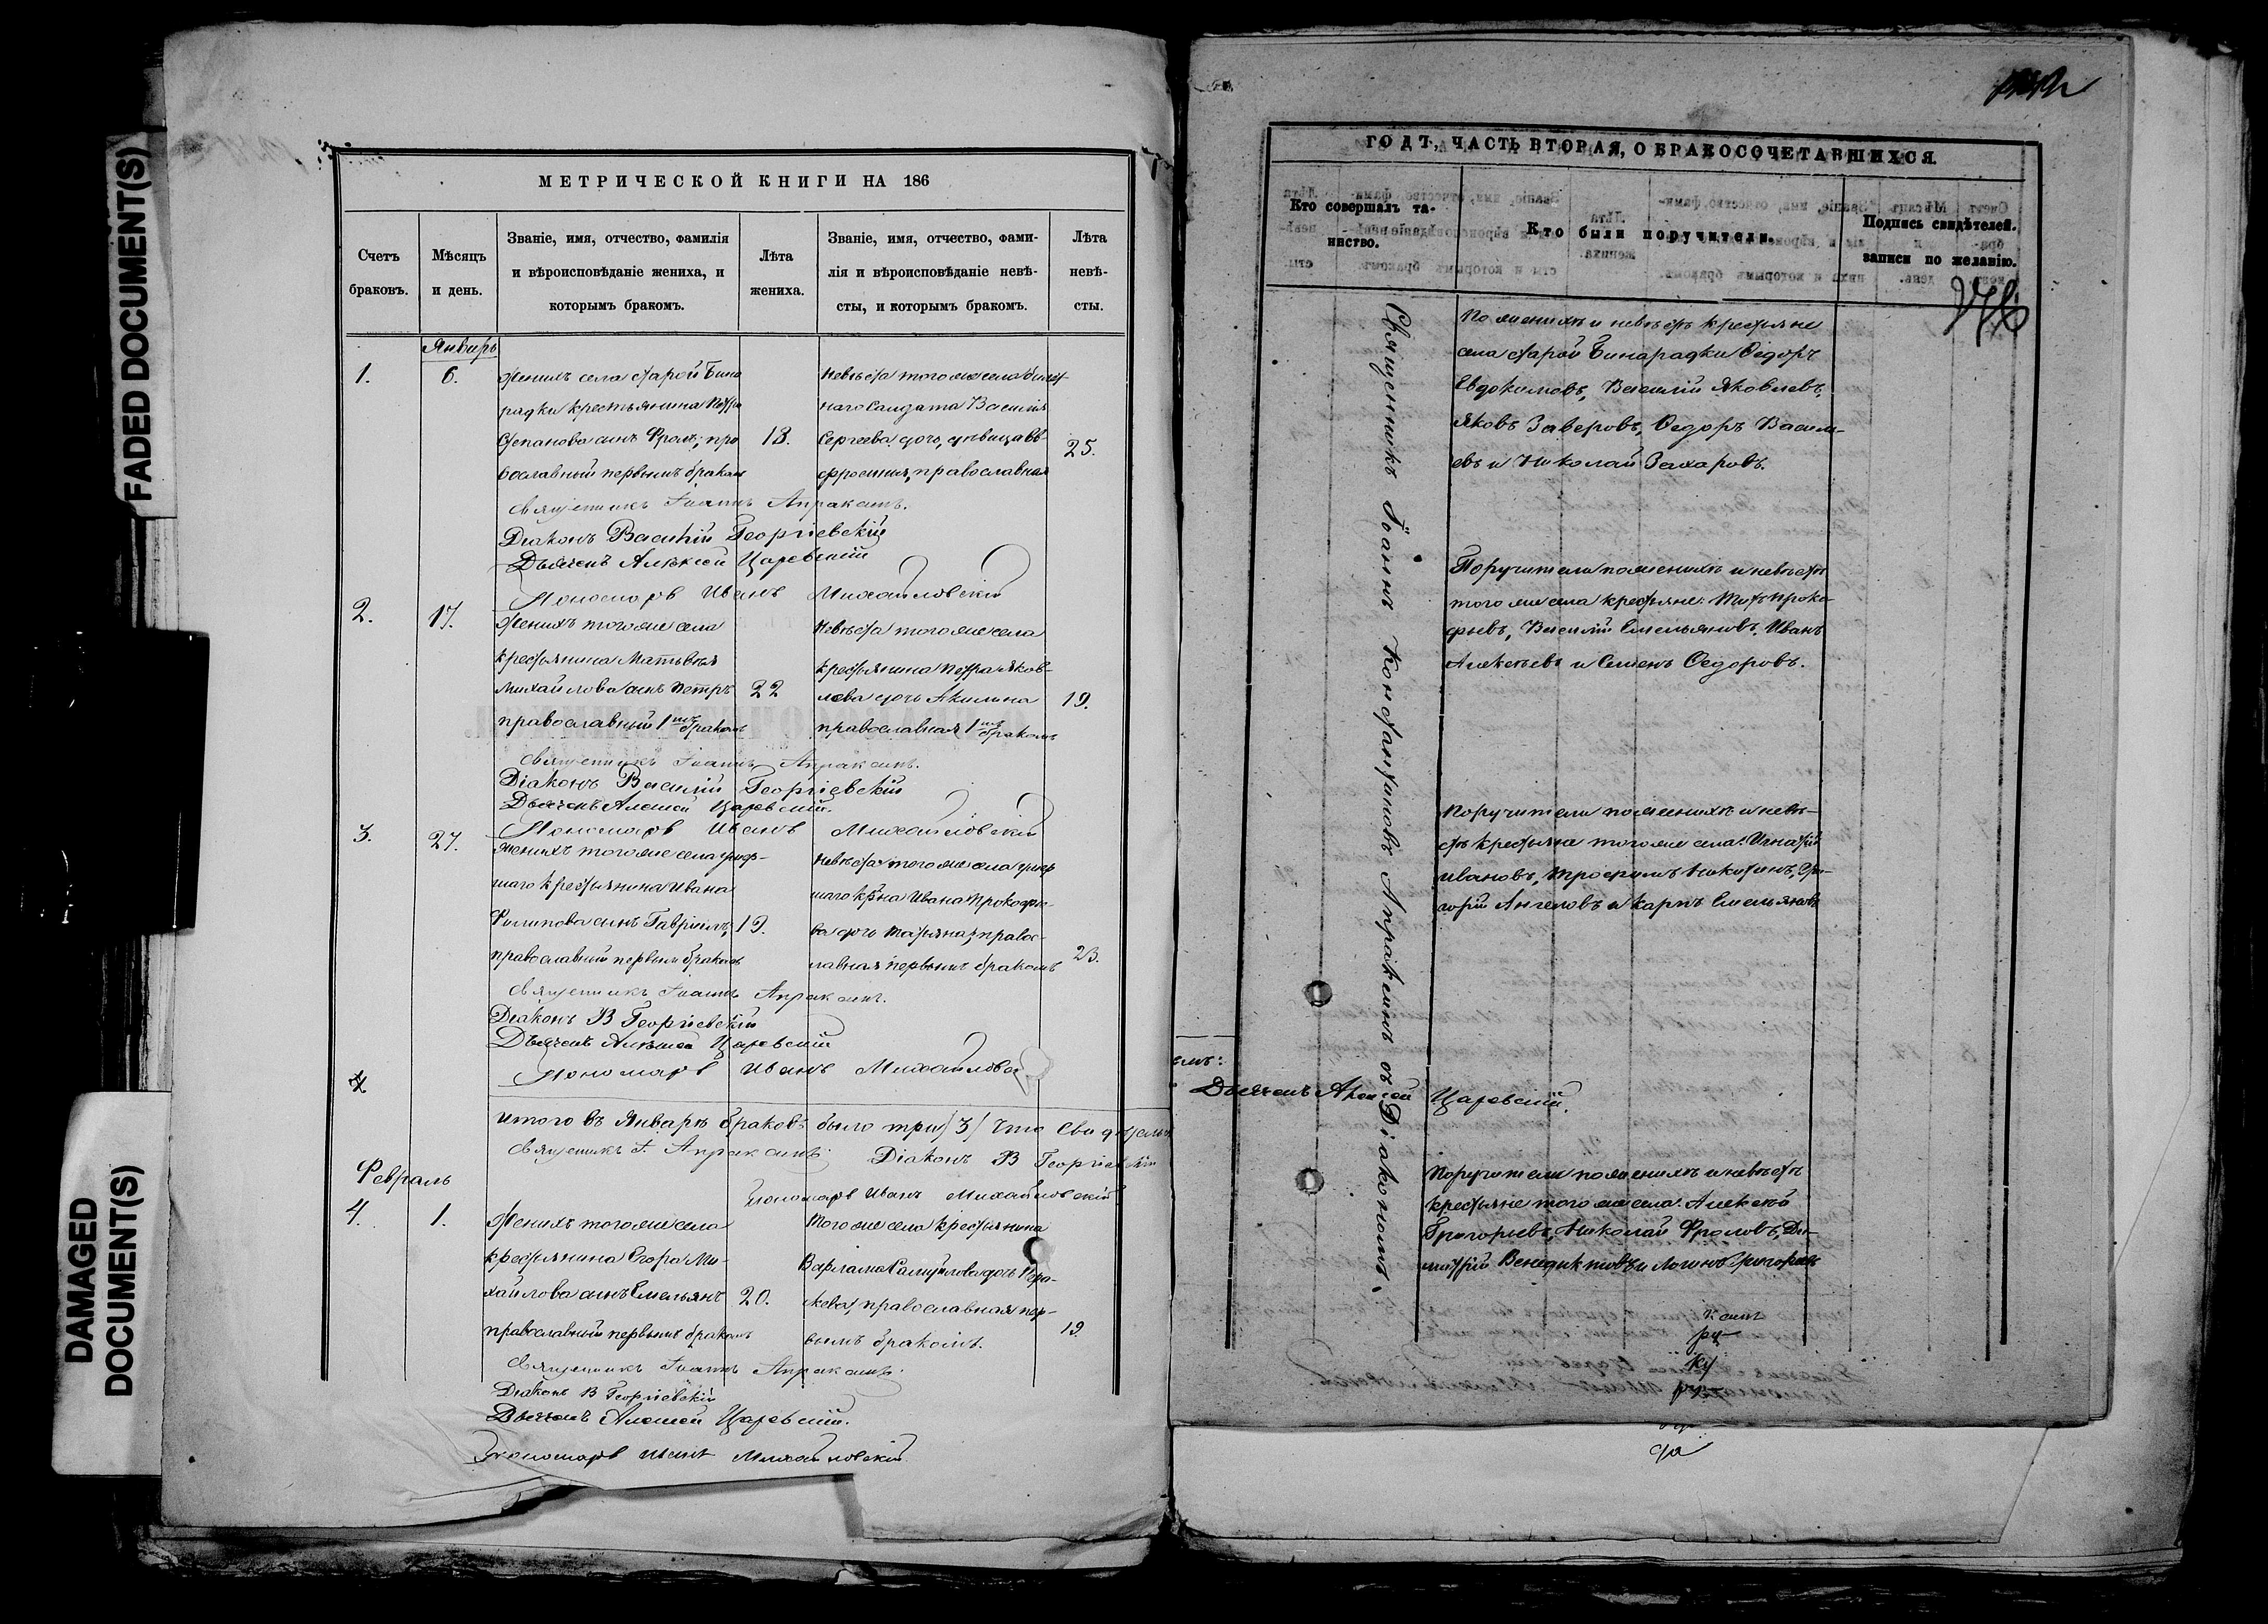 FADED DOCUMENT(S)
DAMAGED
DOCUMENT(S)
МЕТРИЧЕСКОЙ КНИГИ НА 186
Счетъ
браковъ.
Мѣсяцъ
и день.
Званіе, имя, отчество, фамилія
и вѣроисповѣданіе жениха, и
которымъ бракомъ.
Лѣта
жениха.
Званіе, имя, отчество, фами-
лія и вѣроисповѣданіе невѣ-
сты, и которымъ бракомъ.
Лѣта
невѣ-
сты.
Январь
1.
6.
Женихъ села старой Бина
радки крестьянина Петра
Степанова сынъ Фролъ, пра
вославный первымъ бракомъ
18.
Невѣста того же села
наго Солдата Василія
Сергеева дочь, дѣвица Ев-
фросинія, православная
25.
Священникъ Іоаннъ Апраксинъ.
Діаконъ Василій Георгіевскій
Дьячекъ Алексей Царевскій
Пономарь Иванъ Михайловскій
2.
17.
Женихъ того же села
крестьянина Матвѣя
Михайлова сынъ Петръ
православный 1мъ бракомъ
22
Невѣста того же села
крестьянина Петра Яков-
лева дочь Акилина
православная 1мъ бракомъ
19.
Священникъ Іоаннъ Апраксинъ.
Діаконъ Василій Георгіевскій
Дьячекъ Алексей Царевскій.
Пономарь Иванъ Михайловскій
3.
27.
Женихъ того же села умер-
шаго крестьянина Ивана
Филипова сынъ Гавріилъ,
православный первымъ бракомъ
19.
Невѣста того же села умер
шаго кр-на Ивана Прокофье-
ва дочь Татьяна, правос-
лавная первымъ бракомъ
23.
Священникъ Іоаннъ Апраксинъ.
Діаконъ В Георгіевскій
Дьячекъ Алексей Царевскій
Пономарь Иванъ Михайловс
4
Итого въ Январѣ браковъ было три /3/ Что свидѣтель
Священникъ І. Апраксинъ. Діаконъ В Георгіевскій
Пономарь Иванъ Михайловскій
Февраль
4.
1.
Женихъ того же села
крестьянина Егора Ми-
хайлова сынъ Емельянъ
православный первымъ бракомъ
20.
Того же села крестьянина
Варлама Самуйлова дочь Пара-
скева, православная пер-
вымъ бракомъ.
19.
Священникъ Іоаннъ Апраксинъ.
Діаконъ В Георгіевскій
Дьячекъ Алексей Царевскій.
Пономарь Иванъ Михайловскій
ГОДЪ, ЧАСТЬ ВТОРАЯ, О БРАКОСОЧЕТАВШИХСЯ.
Кто совершалъ та-
инство.
Кто были поручители.
Подпись свидѣтелей.
записи по желанію.
Священникъ Іоаннъ Константиновъ Апраксинъ съ Діакономъ.
По женихѣ и невѣстѣ крестьяне
села старой Бинарадки Ѳедоръ
Евдокимовъ, Василій Яковлевъ,
Яковъ Заверовъ, Ѳедоръ Василь-
евъ и Николай Захаровъ.
Поручители по женихѣ и невѣстѣ
того же села крестьяне: Титъ Проко-
фьевъ, Василій Емельяновъ, Иванъ
Алексѣевъ и Семенъ Ѳедоровъ.
Поручители по женихѣ и невѣ-
стѣ крестьяне того же села: Игнатій
Ивановъ, Трофимъ Никитинъ, Гри-
горій Ангеловъ и Карпъ Емельяновъ
емъ:
Дьячекъ Алексей Царевскій.
Поручители по женихѣ и невѣстѣ
крестьяне того же села: Алексѣй
Григорьевъ, Николай Фроловъ, Ди-
митрій Венедиктовъ и Логинъ Григорьевъ